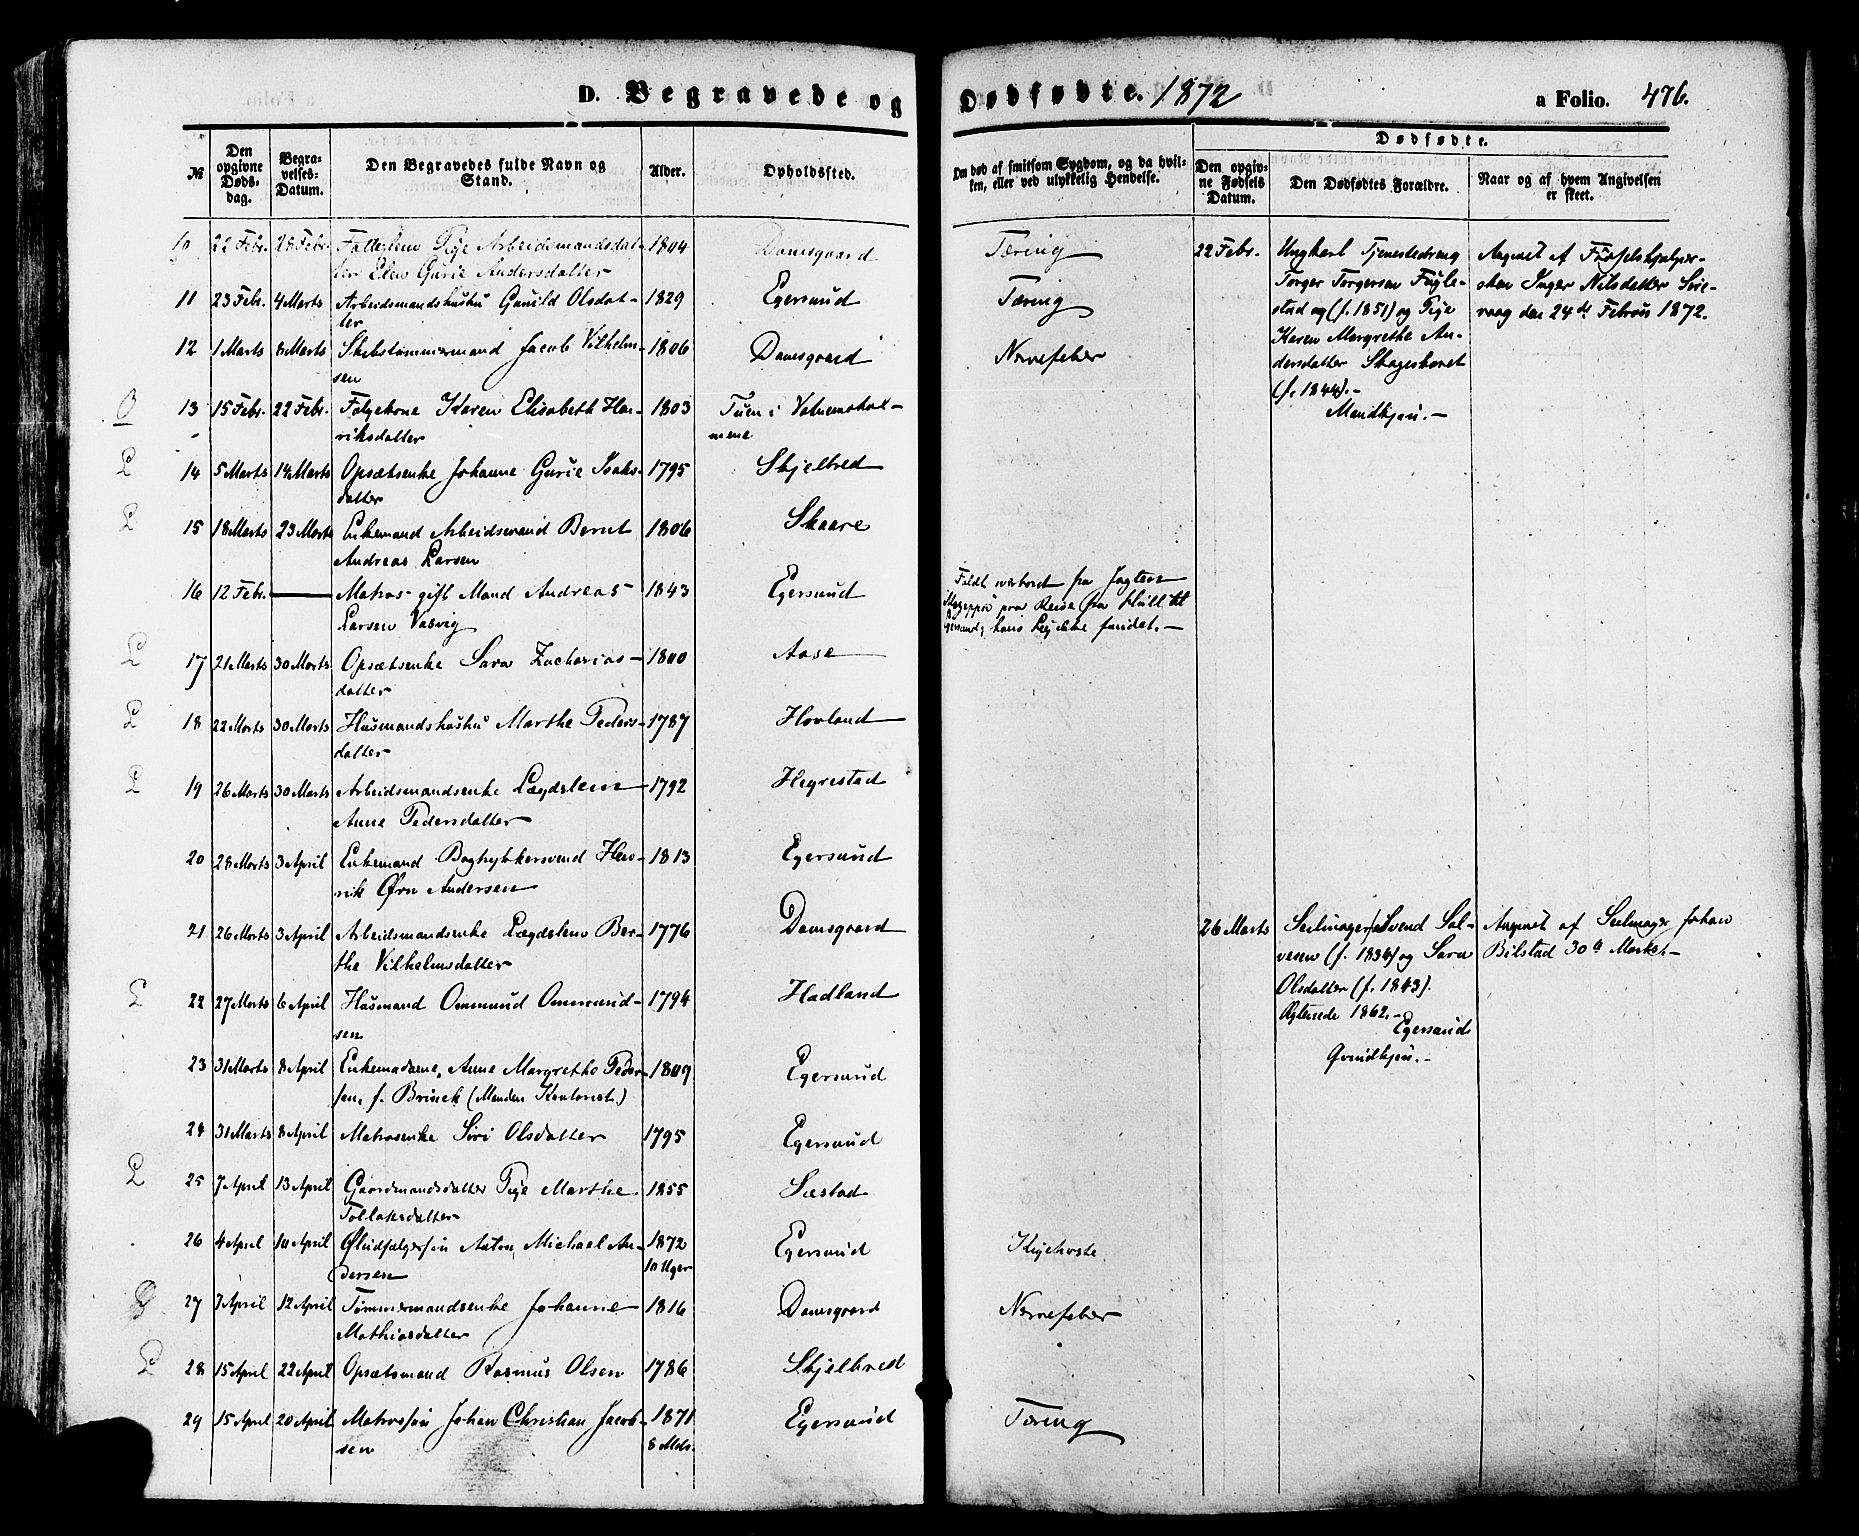 D. Begravede og Dødfødte. 1872
a Folio. 476.
№
Den opgivne Døds-dag.
Begra-velses-Datum.
Den Begravedes fulde Navn og Stand.
Alder.
Opholdssted.
Om død af smitsom Sygdom, og da hvil-
ken, eller ved ulykkelig Hendelse.
Dødfødte.
Den opgiv-ne Fødsels Datum.
Den Dødfødtes Forældre.
Naar og af hvem Angivelsen er skeet.
22 Febr. 28 Febr. Fattiglem Pige Arbeidsmandsdat- 1804 Damsgaard Tæring
ter Elen Gurie Andersdatter
11 23 Febr. 4 Marts Arbeidsmandshustru Gunild Olsdat- 1829 Egersund Tæring
ter
12 1 Marts 8 Marts Skibstømmermand Jacob Vilhelm- 1806 Damsgaard Nervefeber
sen
13 15 Febr. 22 Febr. Følgekone Karen Elisabeth Hen- 1803 Tuen i Vatnemshol-
riksdatter mene
L 14 5 Marts 14 Marts Opsætsenke Johanne Gurie Isaks- 1795 Skjelbred
datter
L 15 18 Marts 23 Marts Enkemand Arbeidsmand Bernt 1806 Skaare
Andreas Larsen
16 12 Febr. — Matros gift Mand Andreas 1843 Egersund
Larsen Vasvig
Faldt overbord fra Jagten
paa Reise fra Hull til
Egersund, hans Lig ikke fundet. —
L 17 21 Marts 30 Marts Opsætsenke Sara Zacharias- 1800 Aase
datter
L 18 22 Marts 30 Marts Husmandshustru Marthe Peders- 1787 Hovland
datter
L 19 26 Marts 30 Marts Arbeidsmandsenke Lægdslem 1792 Hegrestad
Anne Pedersdatter
20 28 Marts 3 April Enkemand Bogtrykkersvend Hen- 1813 Egersund
rik Ørn Andersen
21 26 Marts 3 April Arbeidsmandsenke Lægdslem Ber- 1776 Damsgaard
the Vilhelmsdatter
L 22 27 Marts 6 April Husmand Ommund Ommund- 1794 Hadland
sen
23 31 Marts 8 April Enkemadame, Anne Margrethe Peder- 1809 Egersund
sen, f. Brinck (Manden Kontorist)
24 31 Marts 8 April Matrosenke Siri Olsdatter 1795 Egersund
L 25 7 April 13 April Gaardmandsdatter Pige Marthe 1855 Sæstad
Tollaksdatter
26 4 April 10 April Anton Michael An- 1872 Egersund Kighoste
dersen 10 Uger
27 7 April 12 April Tømmermandsenke Johanne 1816 Damsgaard Nervefeber
Mathiasdatter
L 28 15 April 22 April Opsætsmand Rasmus Olsen 1786 Skjelbred
29 15 April 20 April Matrossøn Johan Christian Jacob- 1871 Egersund Tæring
sen 8 Mdr.
22 Febr. Ungkarl Tjenestedreng
Torger Torgersen Fugle-
stad og (f. 1851) og Pige
Karen Margrethe An-
dersdatter
(f. 1844). —
Mandkjøn. —
Angivet af Fødselshjelper-
sken Inger Nilsdatter
den 24de Februar 1872.
26 Marts Seilmager Svend Sal-
vesen (f. 1834) og Sara
Olsdatter (f. 1843).
Ægteviede 1862. —
Egersund
Qvindkjøn. —
Angivet af Seilmager Johan
Bilstad 30te Marts. —